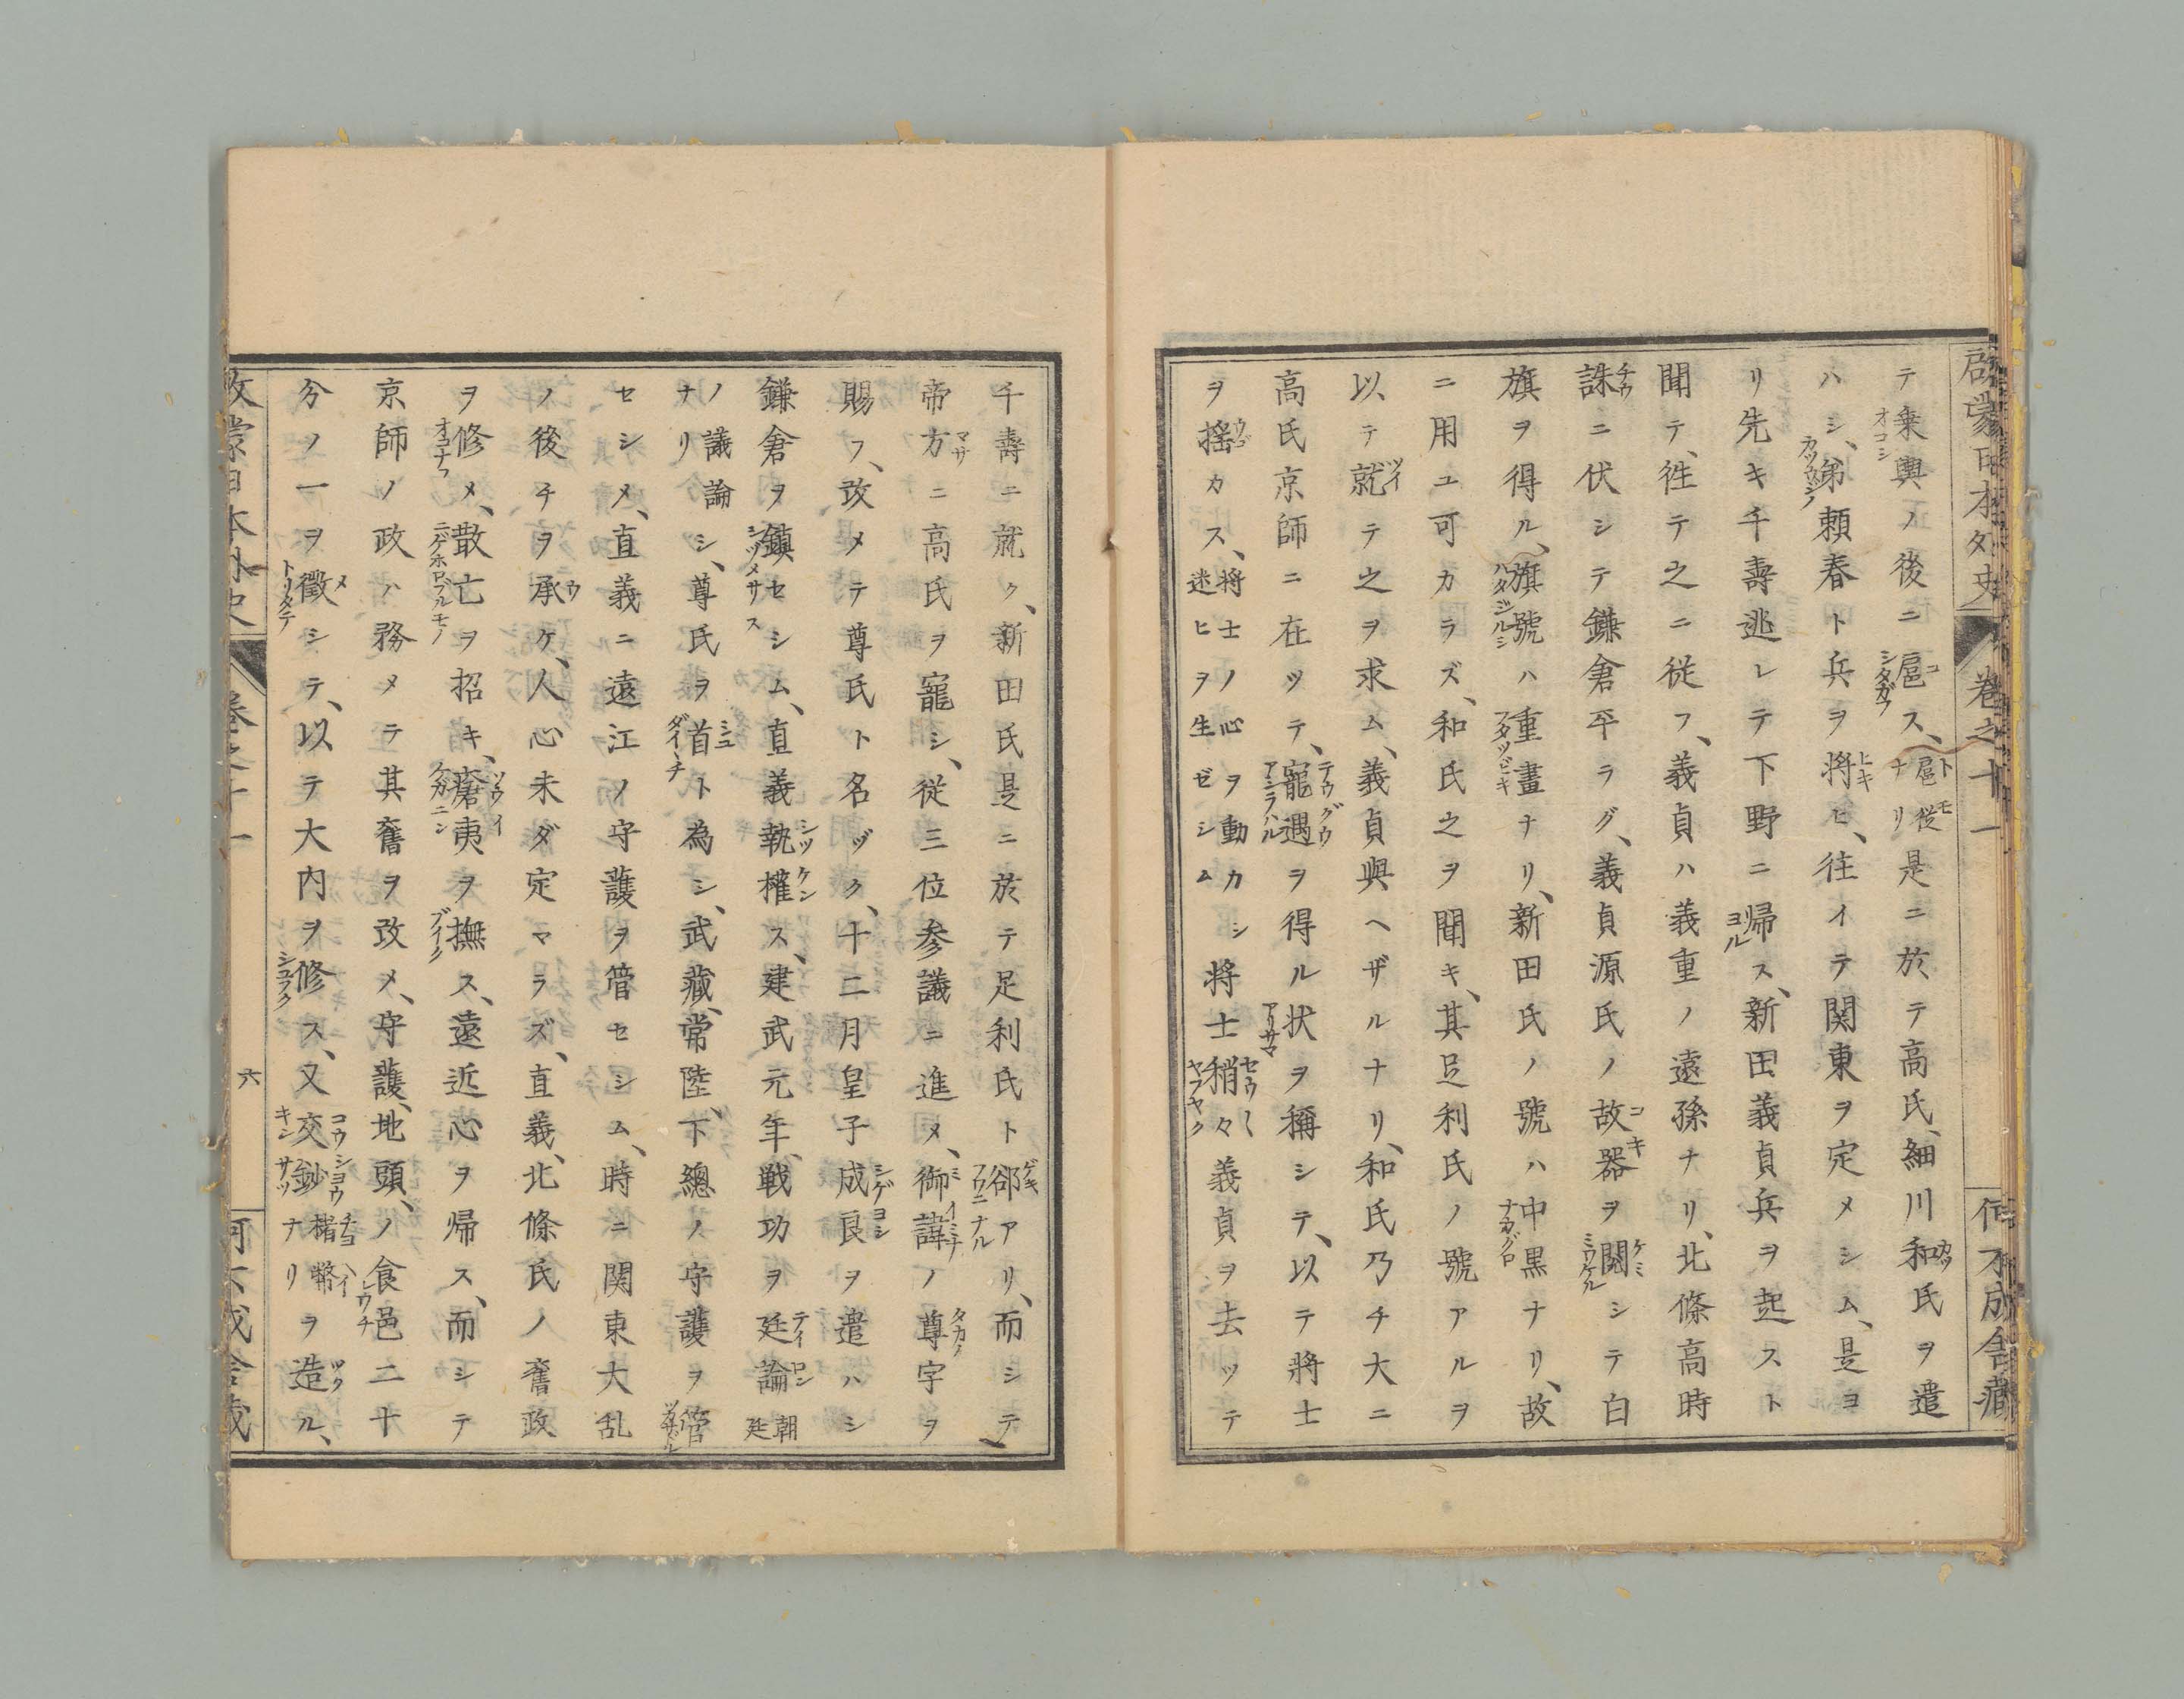 啓蒙日本外史 巻之十一
テ乗輿ノ後ニ扈ス、扈從ナリ是ニ於テ高氏、細川和氏ヲ遣
ハシ、弟頼春ト兵ヲ将ヒ、往イテ関東ヲ定メシム、是ヨ
リ先キ千壽逃レテ下野ニ帰ス、新田義貞兵ヲ起スト
聞テ、徃テ之ニ従フ、義貞ハ義重ノ遠孫ナリ、北條高時
誅ニ伏シテ鎌倉平ラグ、義貞源氏ノ故器ヲ閲シテ白
旗ヲ得ル、旗號ハ重畫ナリ、新田氏ノ號ハ中黒ナリ、故
ニ用ユ可カラズ、和氏之ヲ聞キ、其足利氏ノ號アルヲ
以テ就テ之ヲ求ム、義貞與ヘザルナリ、和氏乃チ大ニ
高氏京師ニ在ツテ、寵遇ヲ得ル状ヲ稱シテ、以テ將士
ヲ搖カス、将士ノ心ヲ動カシ迷ヒヲ生ゼシム将士稍々義貞ヲ去ツテ
千壽ニ就ク、新田氏是ニ於テ足利氏ト郤アリ、而シテ
帝方ニ高氏ヲ寵シ、従三位参議ニ進メ、御諱ノ尊字ヲ
賜フ、改メテ尊氏ト名ヅク、十二月皇子成良ヲ遣ハシ
鎌倉ヲ鎮セシム、直義執權ス、建武元年、戦功ヲ廷論朝廷
ノ議論ナリシ、尊氏ヲ首ト為シ、武藏、常陸、下總ノ守護ヲ管
セシメ、直義ニ遠江ノ守護ヲ管セシム、時ニ関東大乱
ノ後チヲ承ケ、人心未ダ定マラズ、直義、北條氏ノ舊政
ヲ修メ、散亡ヲ招キ、瘡夷ヲ撫ス、遠近心ヲ帰ス、而シテ
京師ノ政ハ務メテ其舊ヲ改メ、守護、地頭、ノ食邑二十
分ノ一ヲ徴シテ、以テ大内ヲ修ス、又交鈔楮幣ナリヲ造ル、
巻之十一
六